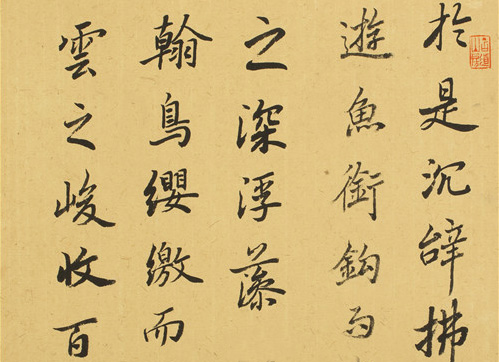 於是沉辭拂
遊魚銜鈎而
之深浮藻
翰鳥纓繳而
雲之峻收百